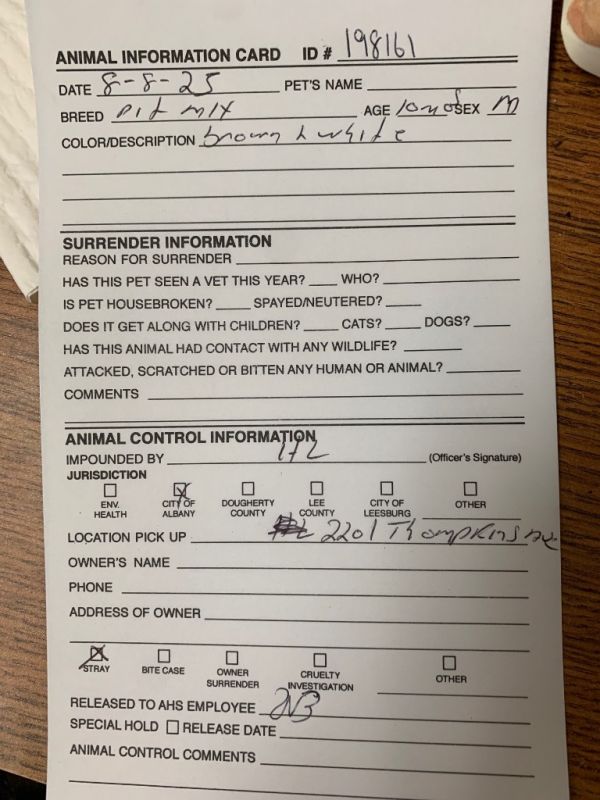 ANIMAL INFORMATION CARD ID # 198161
DATE 8-8-25 PET'S NAME
BREED pit mix AGE 10 mos SEX M
COLOR/DESCRIPTION brown & white
SURRENDER INFORMATION
REASON FOR SURRENDER
HAS THIS PET SEEN A VET THIS YEAR? WHO?
IS PET HOUSEBROKEN? SPAYED/NEUTERED?
DOES IT GET ALONG WITH CHILDREN? CATS? DOGS?
HAS THIS ANIMAL HAD CONTACT WITH ANY WILDLIFE?
ATTACKED, SCRATCHED OR BITTEN ANY HUMAN OR ANIMAL?
COMMENTS
ANIMAL CONTROL INFORMATION
IMPOUNDED BY (Officer's Signature)
JURISDICTION
ENV. HEALTH CITY OF ALBANY DOUGHERTY COUNTY LEE COUNTY CITY OF LEESBURG OTHER
LOCATION PICK UP 2201 Thompkins
OWNER'S NAME
PHONE
ADDRESS OF OWNER
STRAY BITE CASE OWNER SURRENDER CRUELTY INVESTIGATION OTHER
RELEASED TO AHS EMPLOYEE
SPECIAL HOLD RELEASE DATE
ANIMAL CONTROL COMMENTS